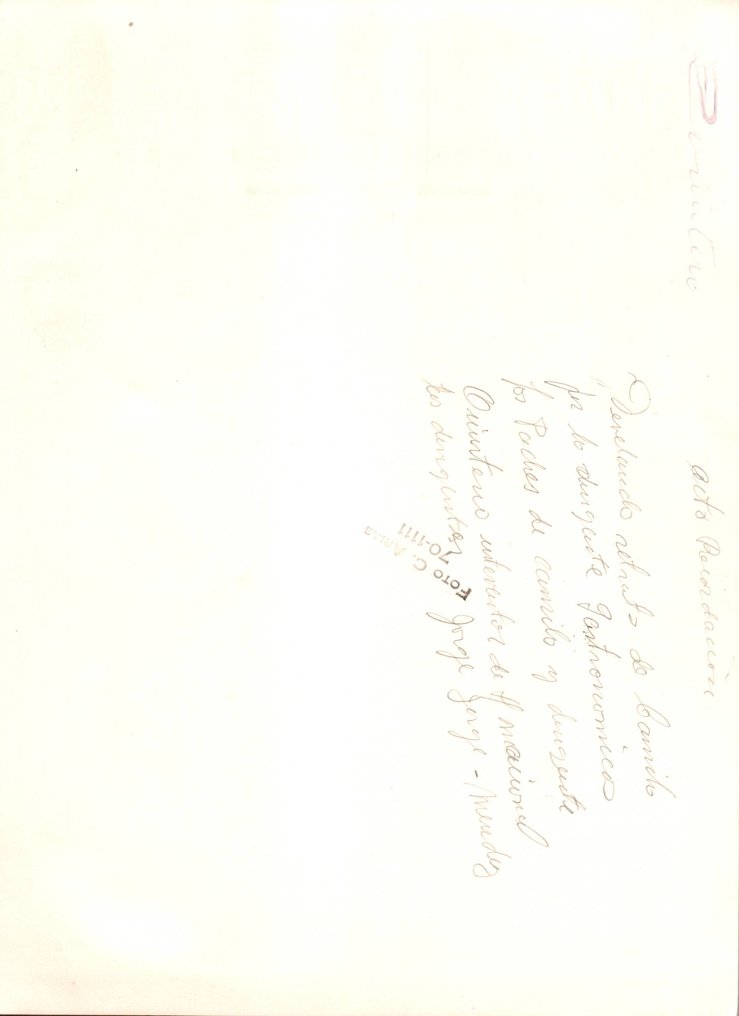 Quintero
acto Recordación
Develando retrato de Camilo
por los dirigente Gastronomicos
los Padres de camilo y dirigente
Quinstero interventor de H nacional
los dirigentes Jorge Jorge - Mendez
FOTO C. Arias
70-1111